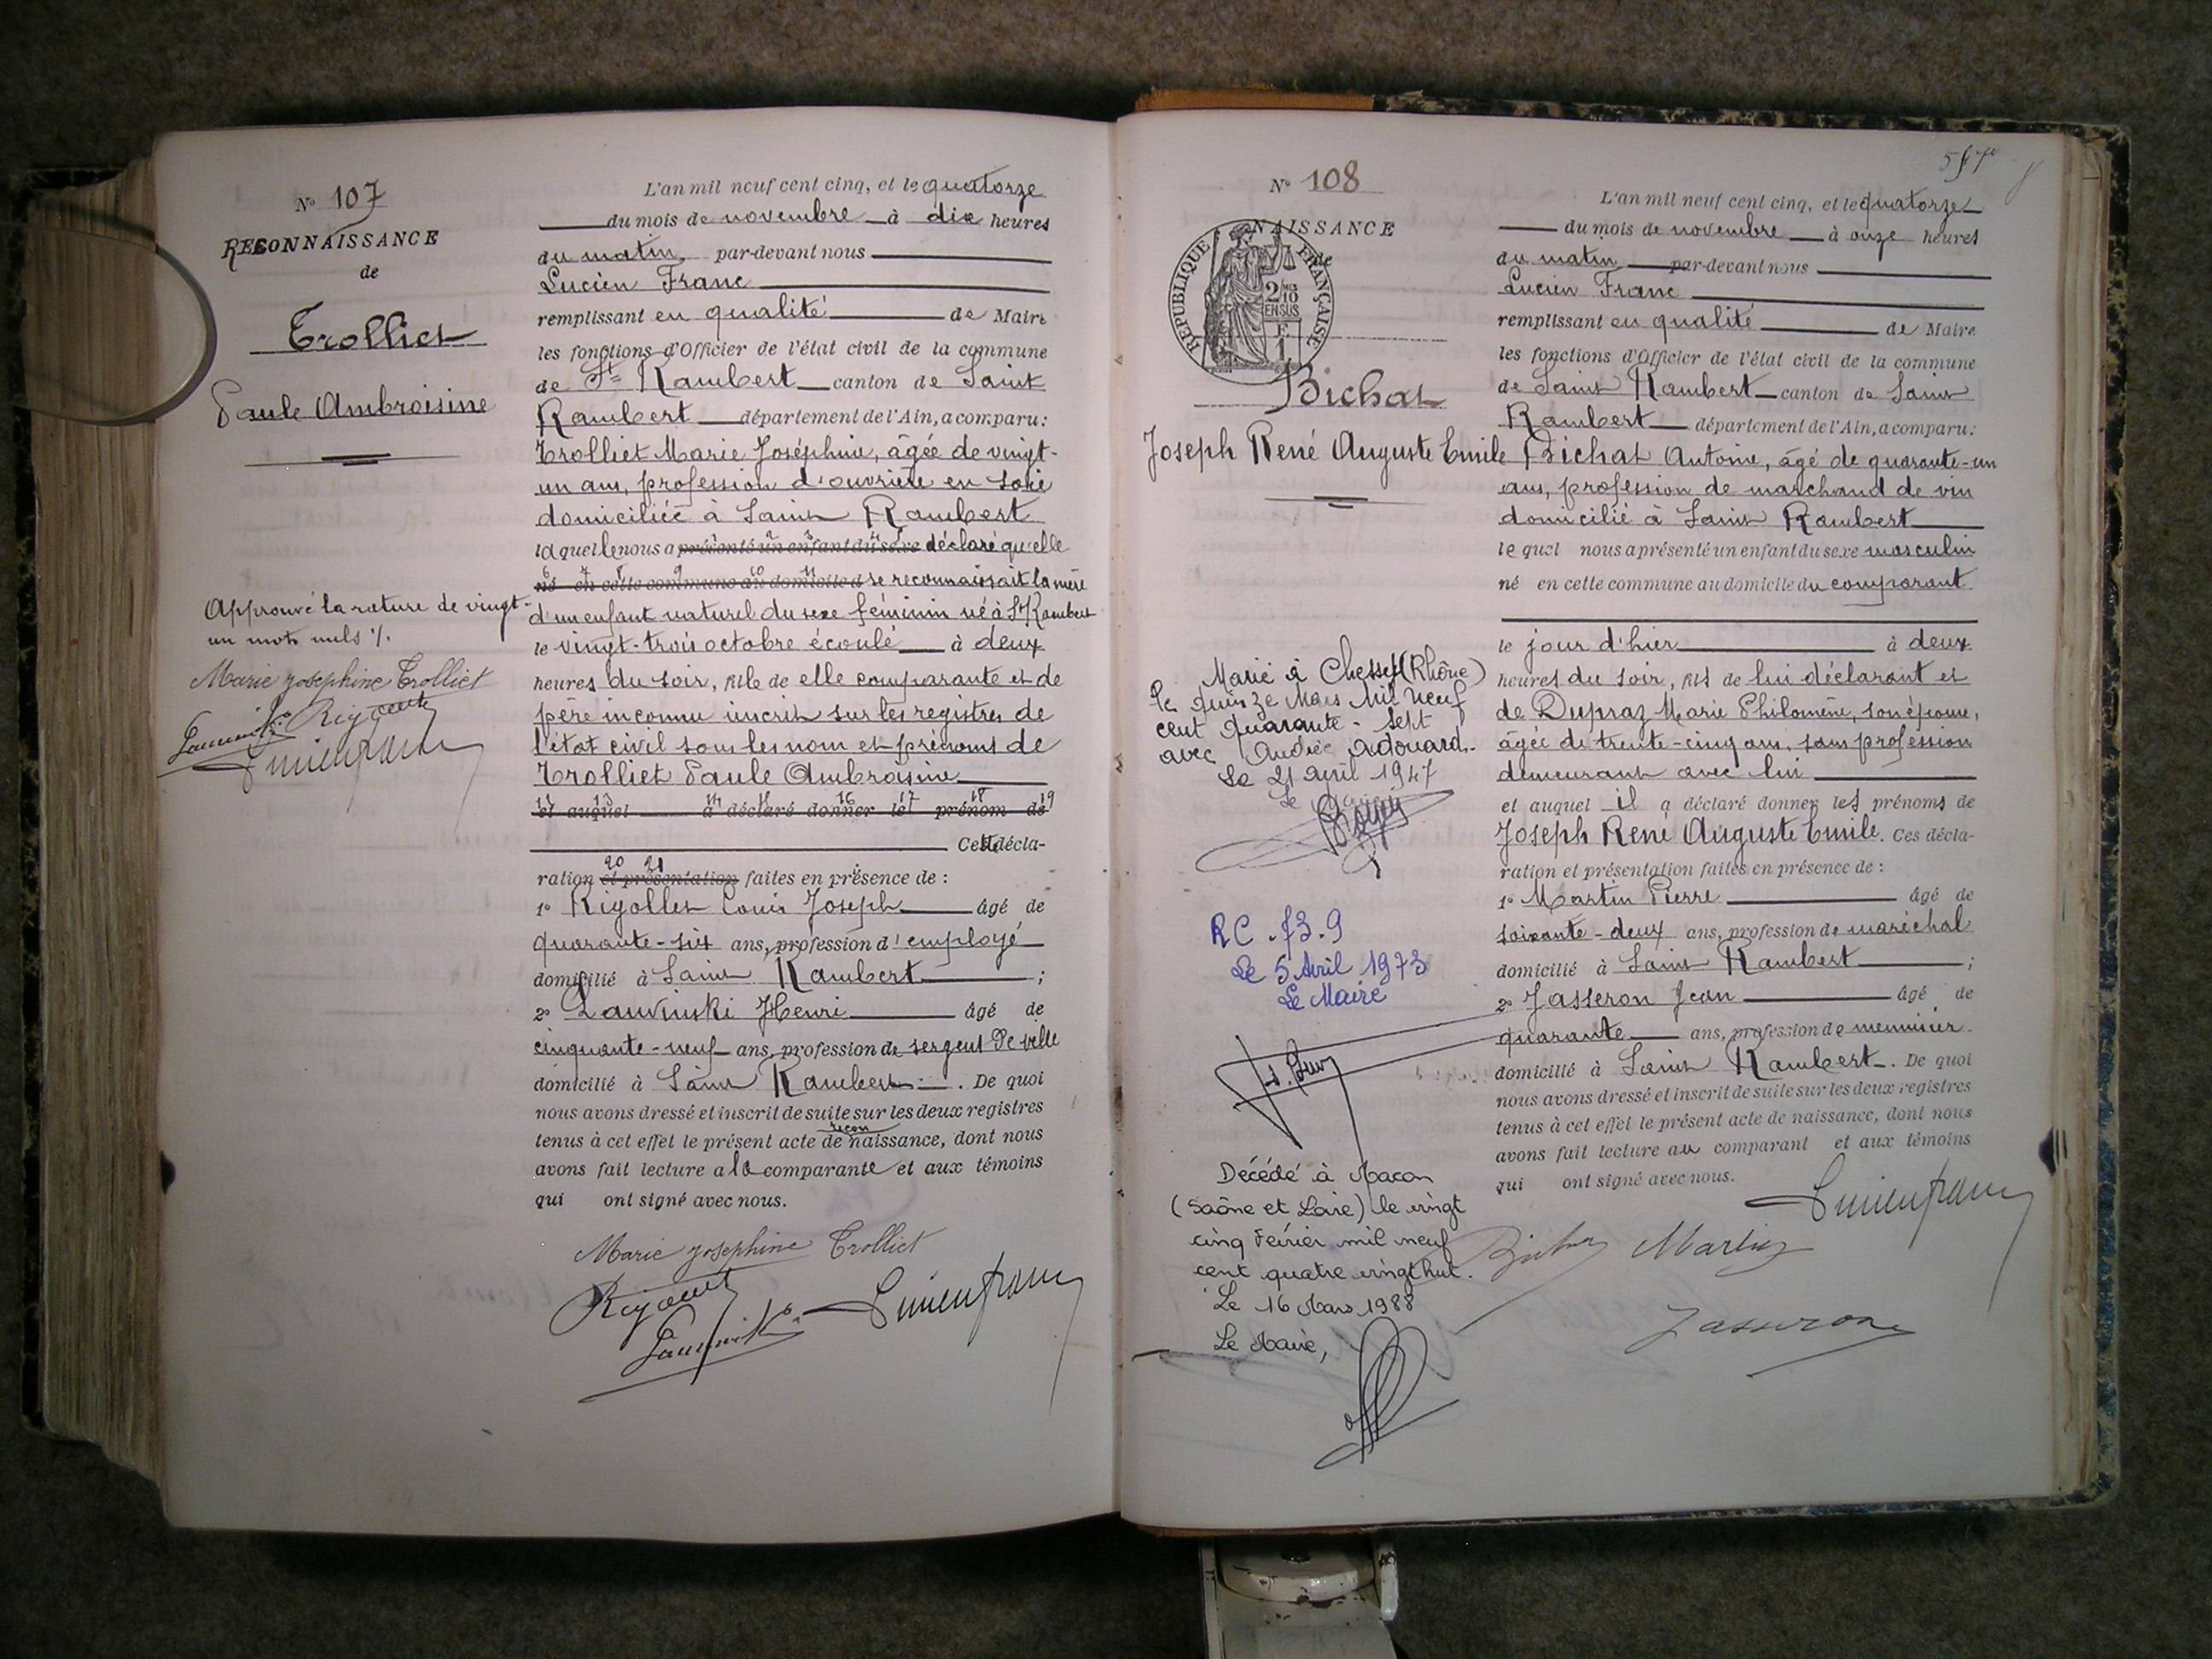 N° 107
RECONNAISSANCE
de
Trolliet
Paule Ambroisine
Approuvé la rature de vingt-
un mots nuls ./.
Marie Josephine Trolliet
L'an mil neuf cent cinq, et le quatorze
du mois de novembre à dix heures
du matin, par-devant nous
Lucien Franc
remplissant en qualité de Maire
les fonctions d'Officier de l'état civil de la commune
de St Rambert canton de Saint
Rambert département de l'Ain, a comparu:
Trolliet Marie Joséphine, âgée de vingt-
un ans, profession d'ouvrière en soie
domiciliée à Saint Rambert
laquelle nous a présenté un enfant du sexe déclaré qu'elle
né en cette commune au domicile d se reconnaissait la mère
d'un enfant naturel du sexe féminin né à St Rambert
le vingt-trois octobre écoulé à deux
heures du soir, fille de elle comparante et de
père inconnu inscrit sur les registres de
l'état civil sous les nom et prénoms de
Trolliet Paule Ambroisine
12 13 14 15 16 17 18 19
et auquel a déclaré donner le prénom de
Cette décla-
20 21
ration et présentation faites en présence de :
1° Rigollet Louis Joseph âgé de
quarante-six ans, profession d'employé
domicilié à Saint Rambert ;
2° Lauvinski Henri âgé de
cinquante-neuf ans, profession de sergent de ville
domicilié à Saint Rambert. De quoi
nous avons dressé et inscrit de suite sur les deux registres
recon
tenus à cet effet le présent acte de naissance, dont nous
avons fait lecture a la comparante et aux témoins
qui ont signé avec nous.
Marie Josephine Trolliet
N° 108
NAISSANCE
de
RÉPUBLIQUE FRANÇAISE
2/10
EN SUS
Bichat
Joseph René Auguste Emile
Marié à Chessy (Rhône)
le quinze Mars Mil Neuf
cent quarante-sept
avec Audouard.
Le 21 avril 1947
Le Maire
RC. 73.9
Le 5 Avril 1973
Le Maire
Décédé à Macon
(Saône et Loire) le vingt
cinq Février mil neuf
cent quatre vingt huit.
Le 16 Mars 1988
Le Maire,
L'an mil neuf cent cinq, et le quatorze
du mois de novembre à onze heures
du matin par-devant nous
Lucien Franc
remplissant en qualité de Maire
les fonctions d'Officier de l'état civil de la commune
de Saint Rambert canton de Saint
Rambert département de l'Ain, a comparu:
Bichat Antoine, âgé de quarante-un
ans, profession de marchand de vin
domicilié à Saint Rambert
lequel nous a présenté un enfant du sexe masculin
né en cette commune au domicile du comparant
le jour d'hier à deux
heures du soir, fils de lui déclarant et
de Dupraz Marie Philomène, son épouse,
âgée de trente-cinq ans, sans profession
demeurant avec lui
et auquel il a déclaré donner les prénoms de
Joseph René Auguste Emile. Ces décla-
ration et présentation faites en présence de :
1° Martin Pierre âgé de
soixante-deux ans, profession de maréchal
domicilié à Saint Rambert ;
2° Jasseron Jean âgé de
quarante ans, profession de menuisier
domicilié à Saint Rambert. De quoi
nous avons dressé et inscrit de suite sur les deux registres
tenus à cet effet le présent acte de naissance, dont nous
avons fait lecture au comparant et aux témoins
qui ont signé avec nous.
Martin
Jasseron